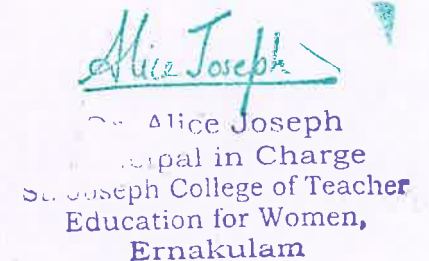 Alice Joseph
Alice Joseph
in Charge
Joseph College of Teacher
Education for Women,
Ernakulam